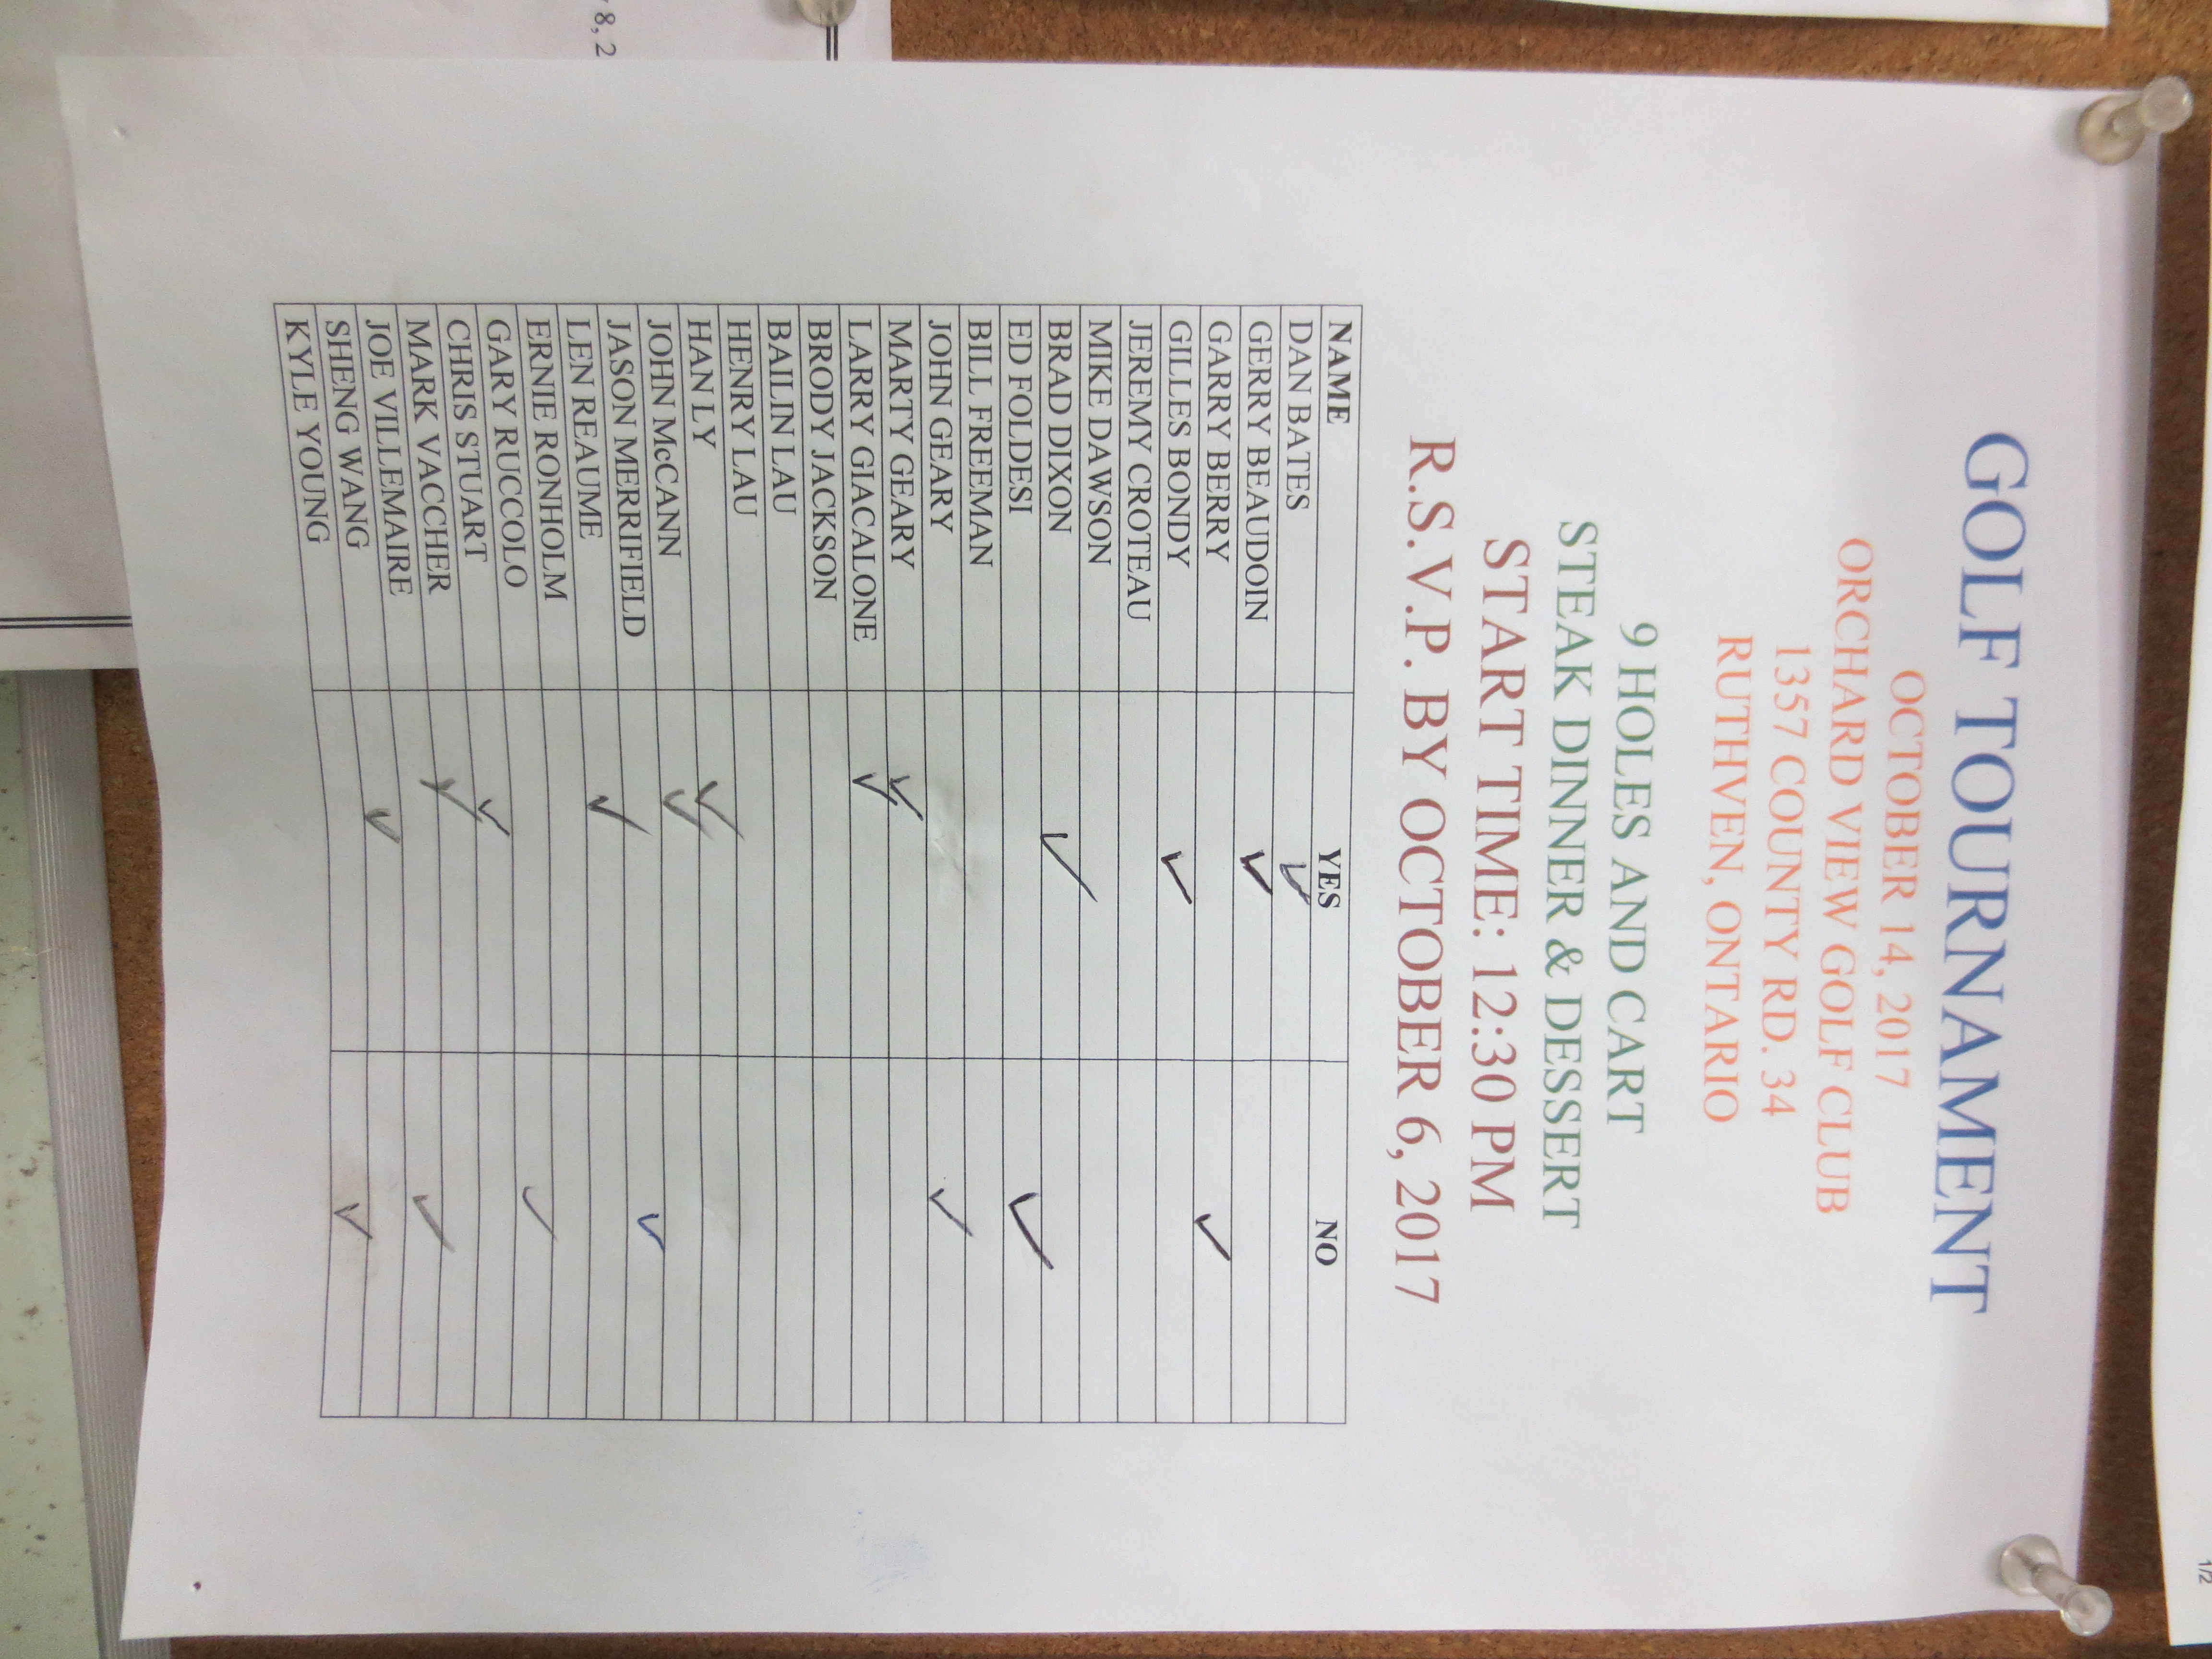 GOLF TOURNAMENT
OCTOBER 14, 2017
ORCHARD VIEW GOLF CLUB
1357 COUNTY RD. 34
RUTHVEN, ONTARIO
9 HOLES AND CART
STEAK DINNER & DESSERT
START TIME: 12:30 PM
R.S.V.P. BY OCTOBER 6, 2017
NAME YES NO
DAN BATES
GERRY BEAUDOIN
GARRY BERRY
GILLES BONDY
JEREMY CROTEAU
MIKE DAWSON
BRAD DIXON
ED FOLDESI
BILL FREEMAN
JOHN GEARY
MARTY GEARY
LARRY GIACALONE
BRODY JACKSON
BAILIN LAU
HENRY LAU
HAN LY
JOHN McCANN
JASON MERRIFIELD
LEN REAUME
ERNIE RONHOLM
GARY RUCCOLO
CHRIS STUART
MARK VACCHER
JOE VILLEMAIRE
SHENG WANG
KYLE YOUNG
8, 2
1/2